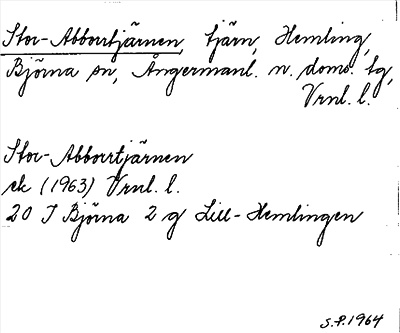 Stor-Abborrtjärnen, tjärn, Hemling,
Björna sn, Ångermanl. n. doms. tg,
Vrnl. l.
Stor-Abborrtjärnen
ek (1963) Vrnl. l.
20 J Björna 2 g Lill-Hemlingen
S.P. 1964